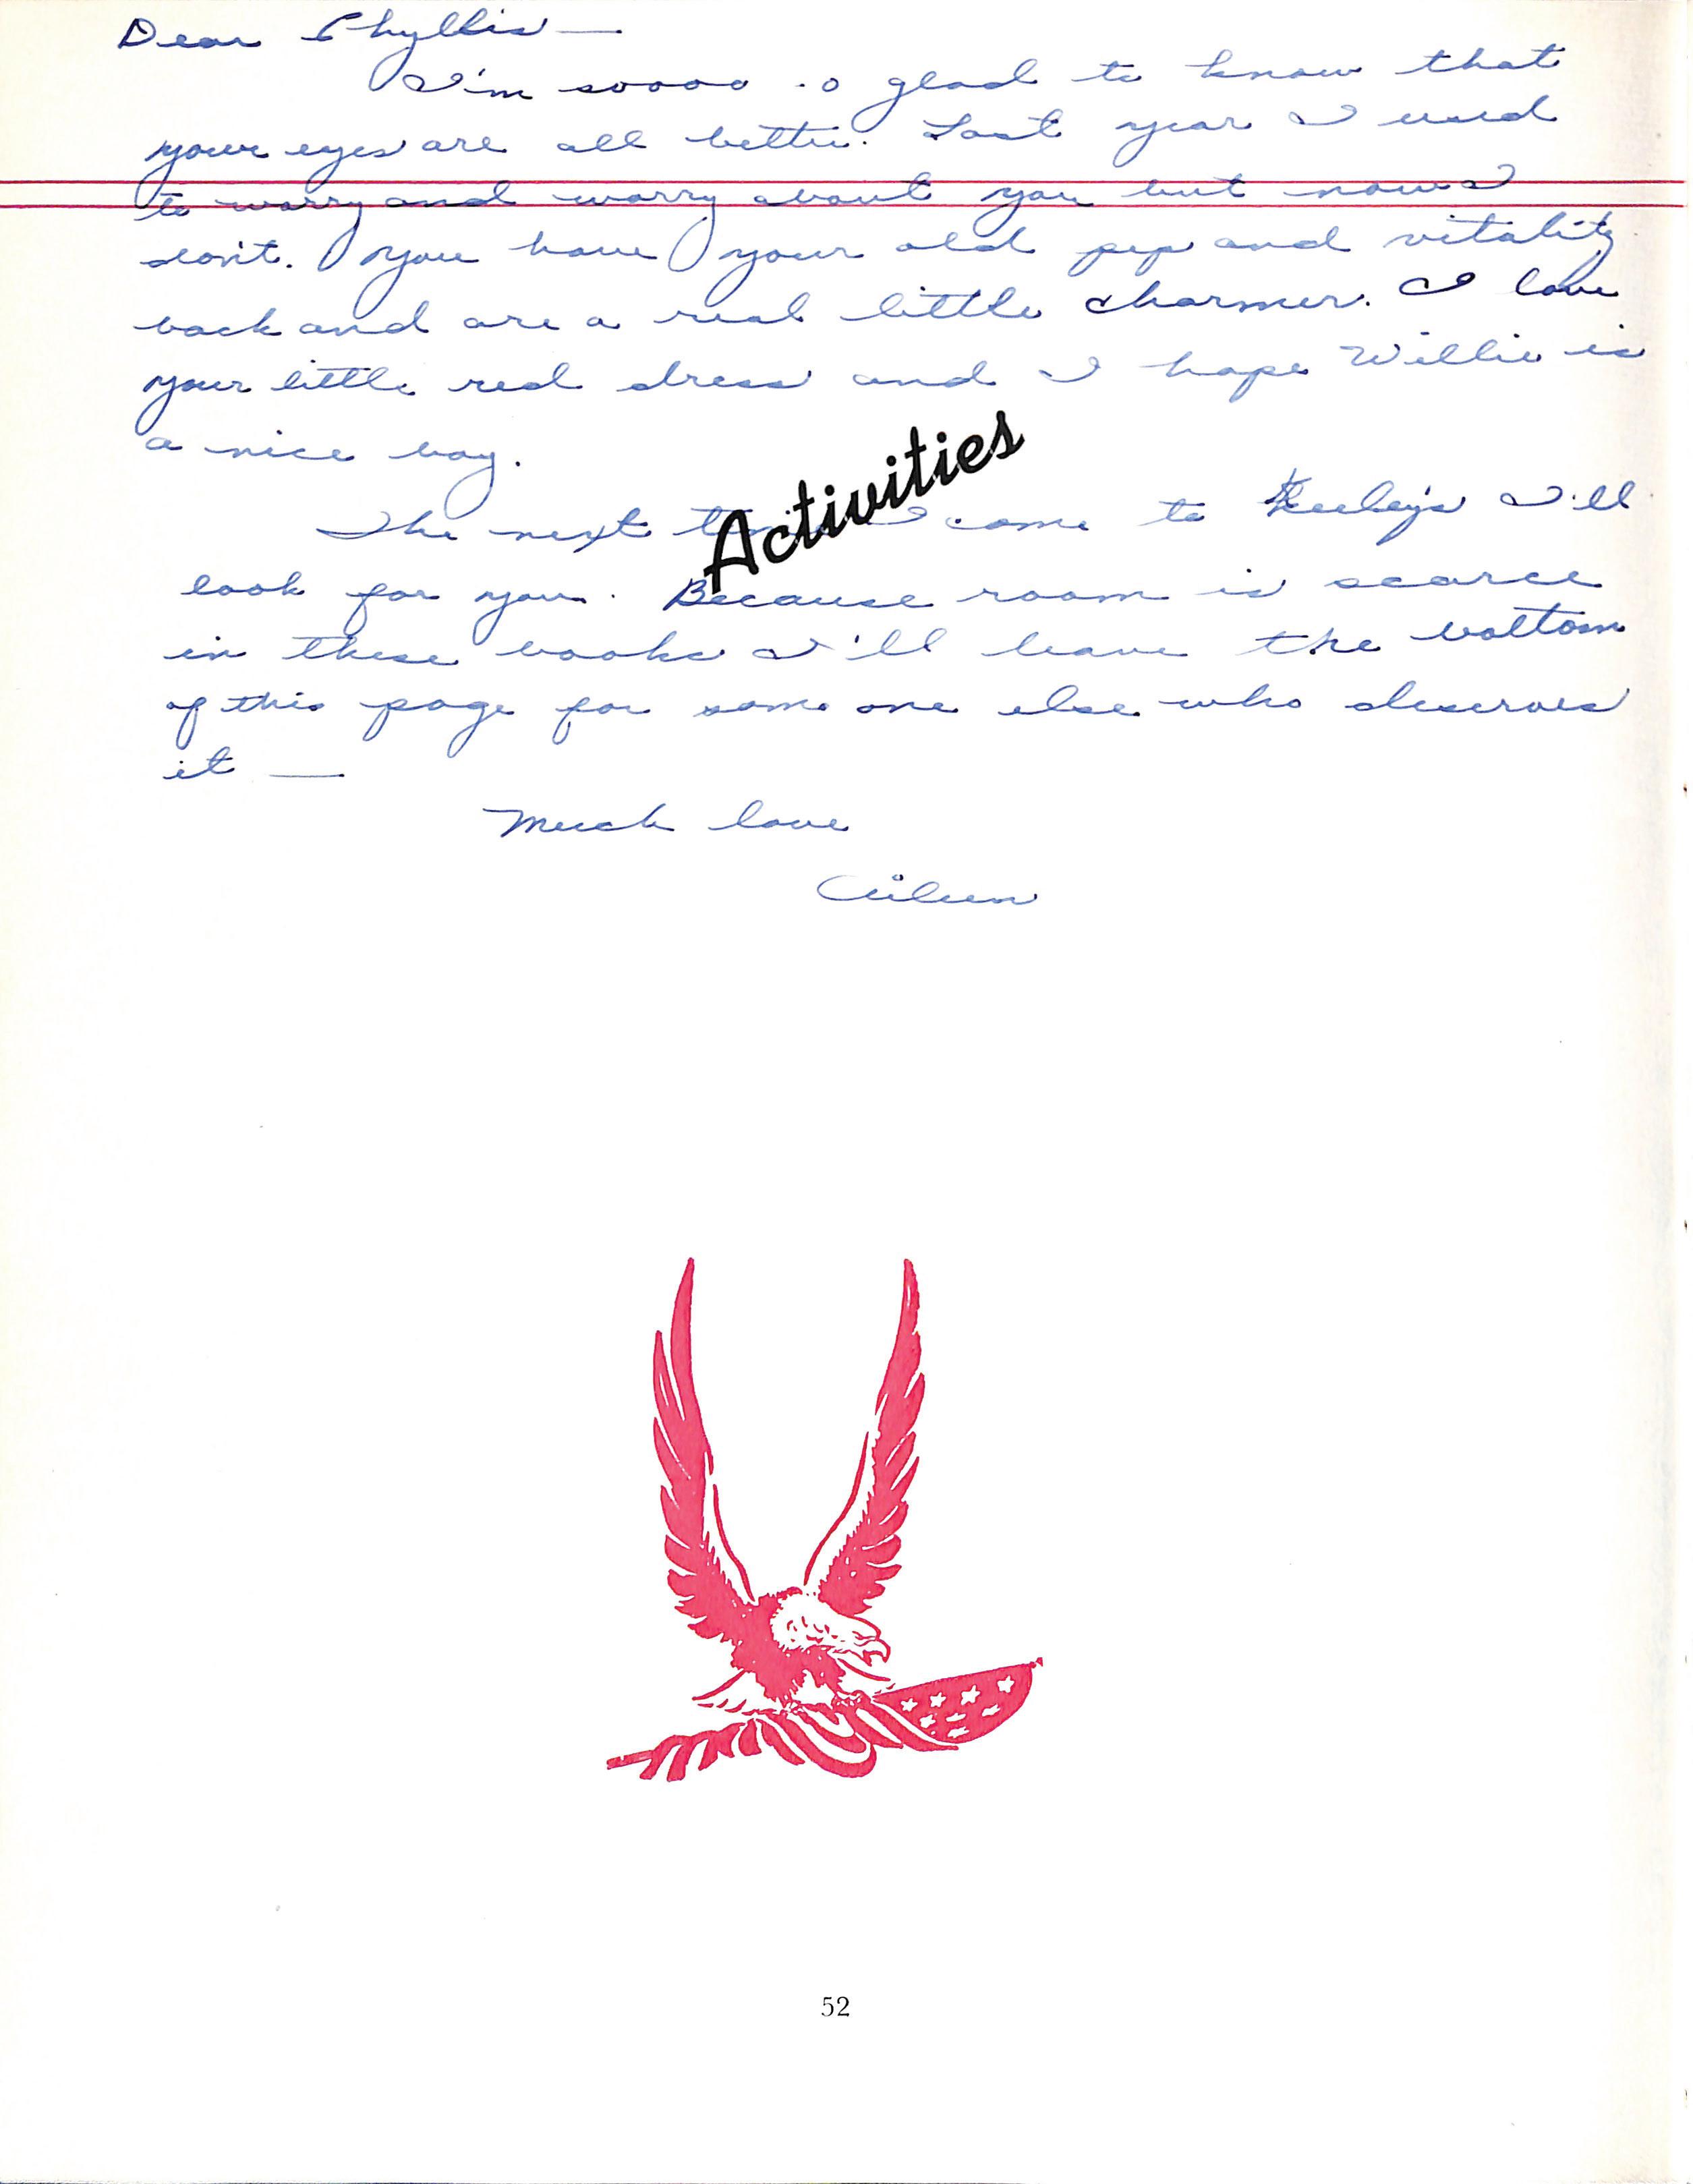 Dear Phyllis —
I'm soooo .o glad to know that
your eyes are all better. Last year I used
to worry and worry about you but now I
don't. You have your old pep and vitality
back and are a real little charmer. I love
your little red dress and I hope Willie is
a nice boy.
Activities
The next time I come to Keeley's I'll
look for you. Because room is scarce
in these books I'll leave the bottom
of this page for some one else who deserves
it —
Much love
Eileen
52